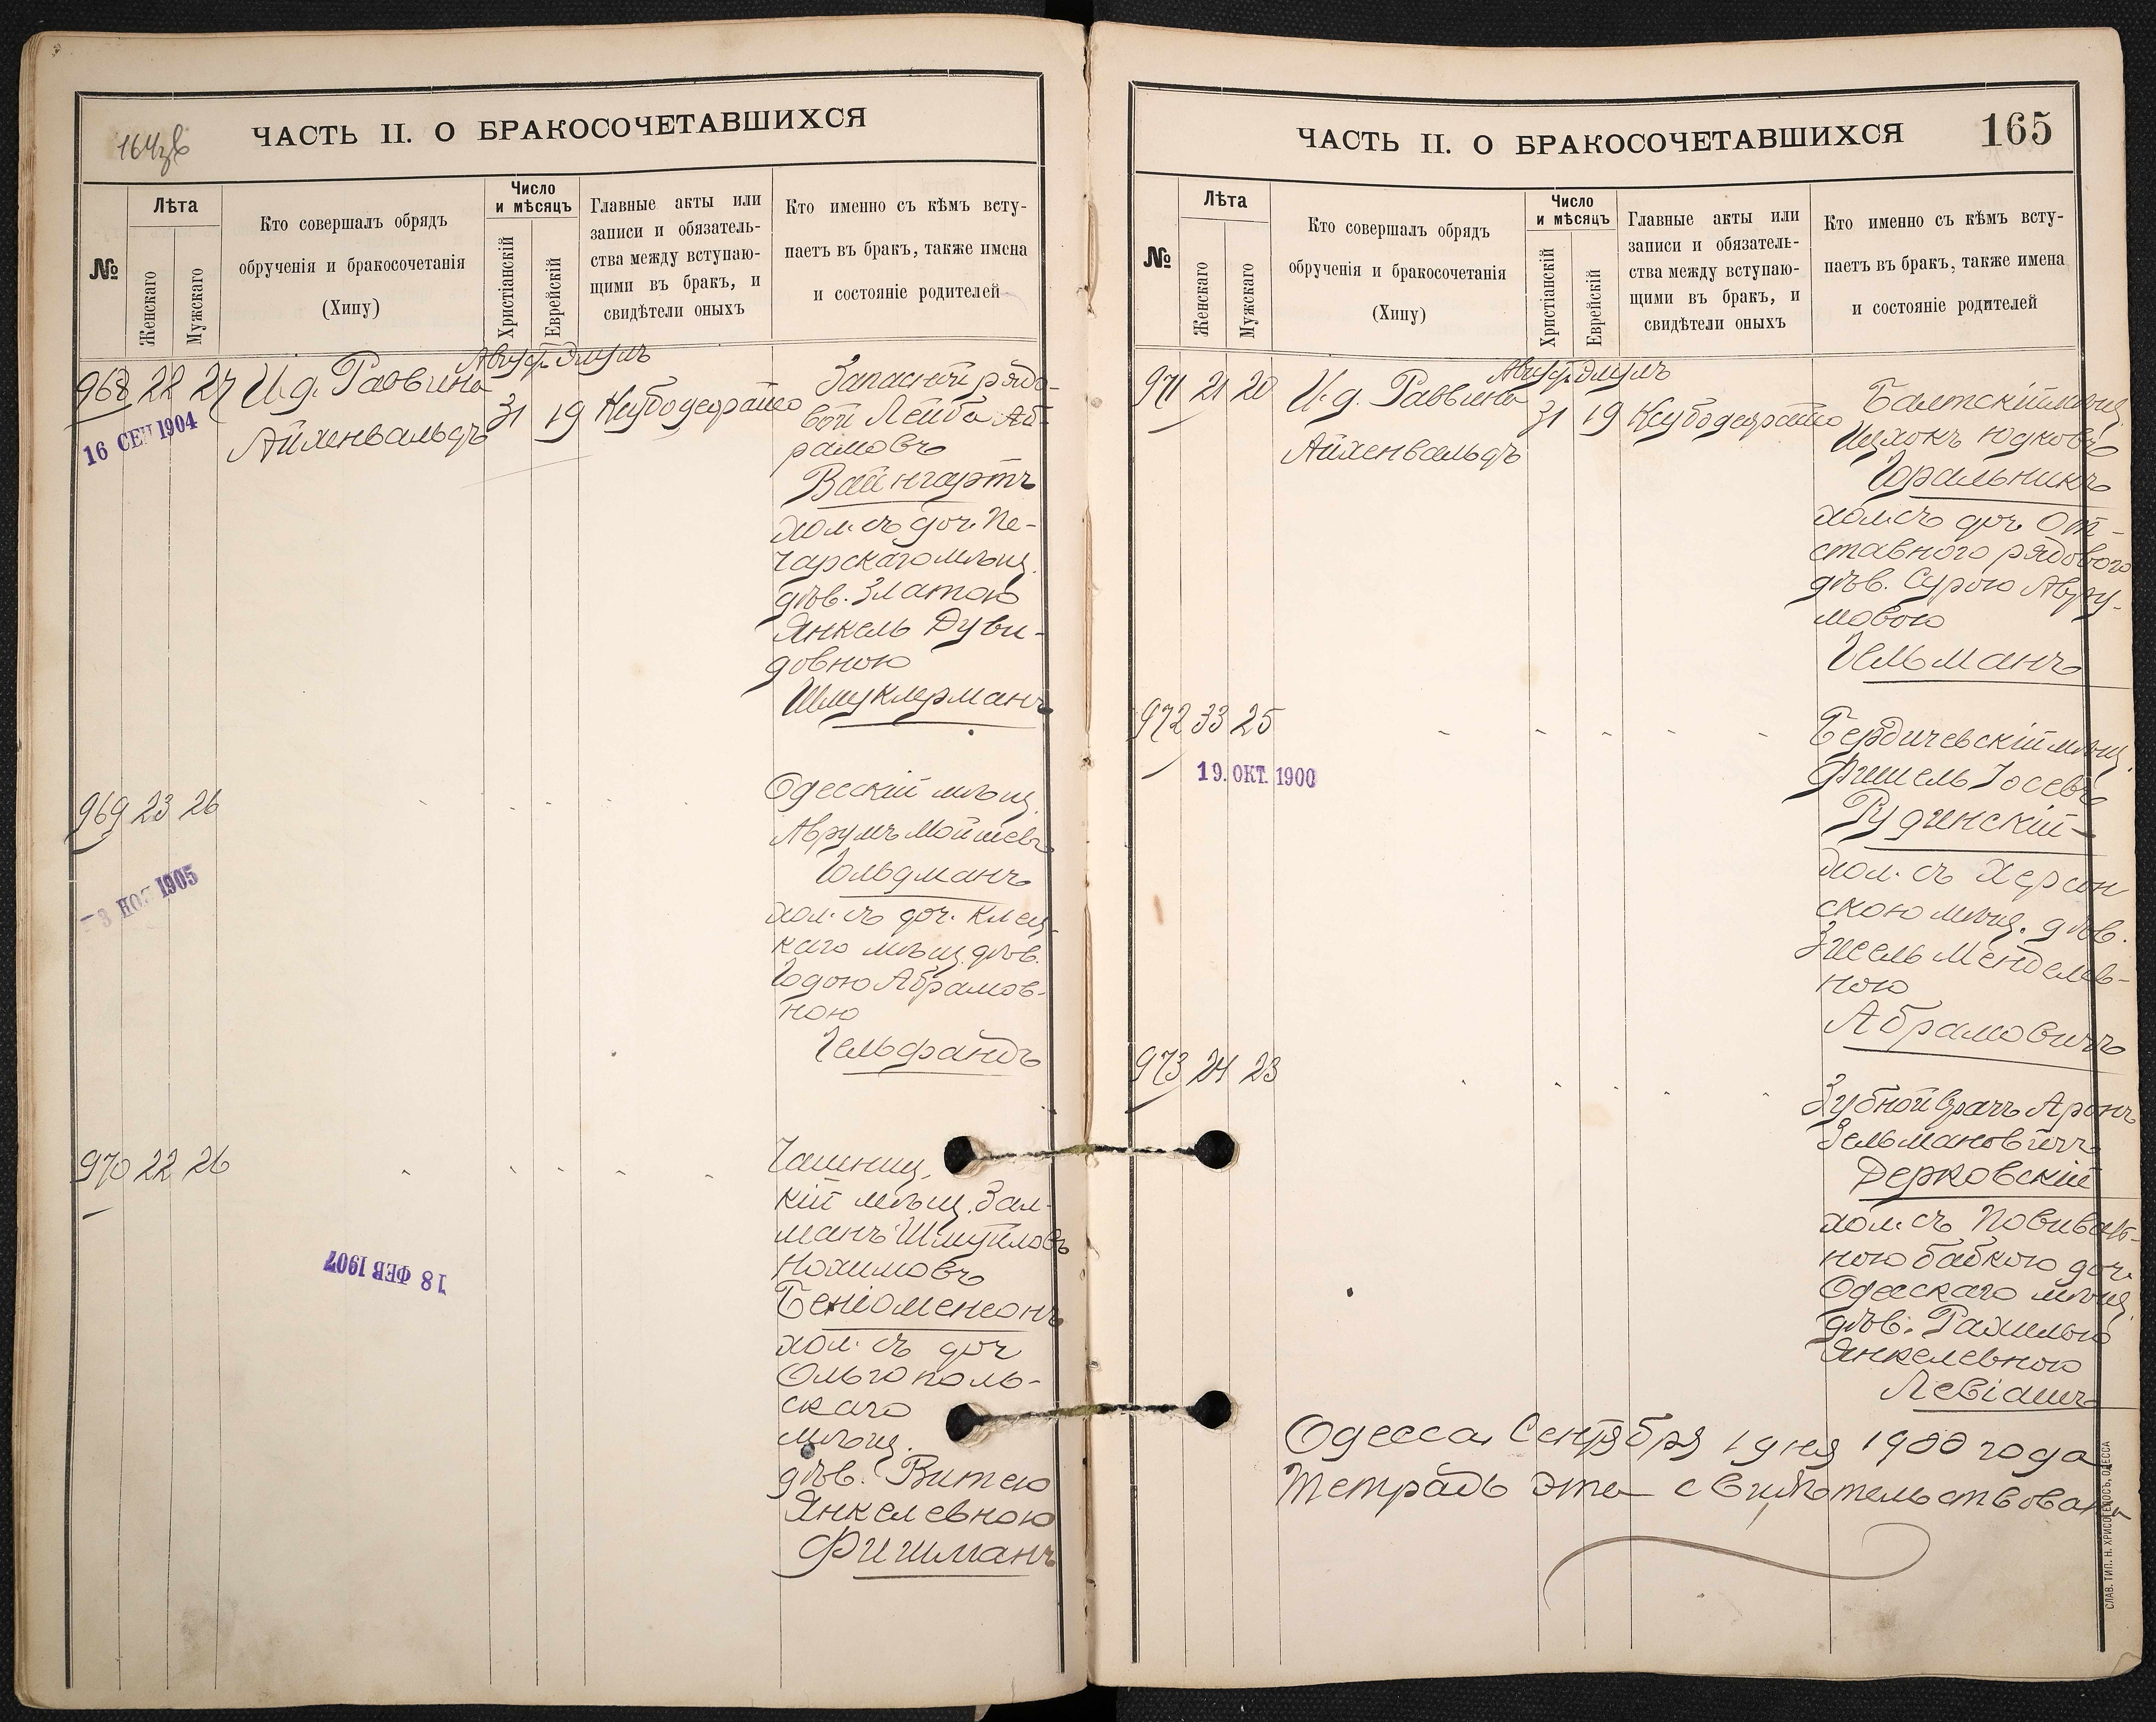 164об
ЧАСТЬ II. О БРАКОСОЧЕТАВШИХСЯ
№
Лѣта
Женскаго
Мужскаго
Кто совершалъ обрядъ
обрученія и бракосочетанія
(Хипу)
Число
и мѣсяцъ
Христіанскій
Еврейскій
Главные акты или
записи и обязатель-
ства между вступаю-
щими въ бракъ, и
свидѣтели оныхъ
Кто именно съ кѣмъ всту-
паетъ въ бракъ, также имена
и состояніе родителей
968 22 27 И.д. Раввина
Айхенвальдъ
Август Элулъ
31 19
16 СЕН 1904
Запасный рядо-
вой Лейба Аб-
рамовъ
Вайнгартъ
хол. съ доч. Пе-
чарскаго мѣщ.
дѣв. Златою
Янкель Дуви-
довною
Шмуклерманъ
969 23 26
3 НОЯ 1905
Одесскій мѣщ.
Аврумъ Мойшевъ
Гольдманъ
хол. съ доч. Клец-
каго мѣщ. дѣв.
Годою Абрамов-
ною
Гельфандъ
970 22 26
18 ФЕВ 1907
Чашниц-
кій мѣщ. Зал-
манъ Шмуйловъ
Нохимовъ
Беніоменсонъ
хол. съ доч
Ольгополь-
скаго
мѣщ.
дѣв. Витею
Янкелевною
Фишманъ
ЧАСТЬ II. О БРАКОСОЧЕТАВШИХСЯ
165
№
Лѣта
Женскаго
Мужскаго
Кто совершалъ обрядъ
обрученія и бракосочетанія
(Хипу)
Число
и мѣсяцъ
Христіанскій
Еврейскій
Главные акты или
записи и обязатель-
ства между вступаю-
щими въ бракъ, и
свидѣтели оныхъ
Кто именно съ кѣмъ всту-
паетъ въ бракъ, также имена
и состояніе родителей
971 21 20 И.д. Раввина
Айхенвальдъ
Август Элулъ
31 19
Балтскій мѣщ
Ицхокъ Юдковъ
Гральникъ
хол. съ доч. От-
ставного рядового
дѣв. Сурою Авру-
мовою
Гельманъ
972 33 25
19. ОКТ. 1900
Бердичевскій мѣщ.
Фишель Іосевъ
Рудинскій
хол. съ Херсон
скою мѣщ. дѣв.
Зисель Менделев-
ною
Абрамовичъ
973 24 23
Зубной врачъ Аронъ
Зельмановичъ
Дерковскій
хол. съ Повиваль-
ною бабкою доч.
Одесскаго мѣщ.
дѣв. Рахилью
Янкелевною
Левіашъ
Одесса, Сентября 1 дня 1900 года
Тетрадь эта свидѣтельствована
СЛАВ. ТИП. Н. ХРИСОГЕЛОСЪ, ОДЕССА